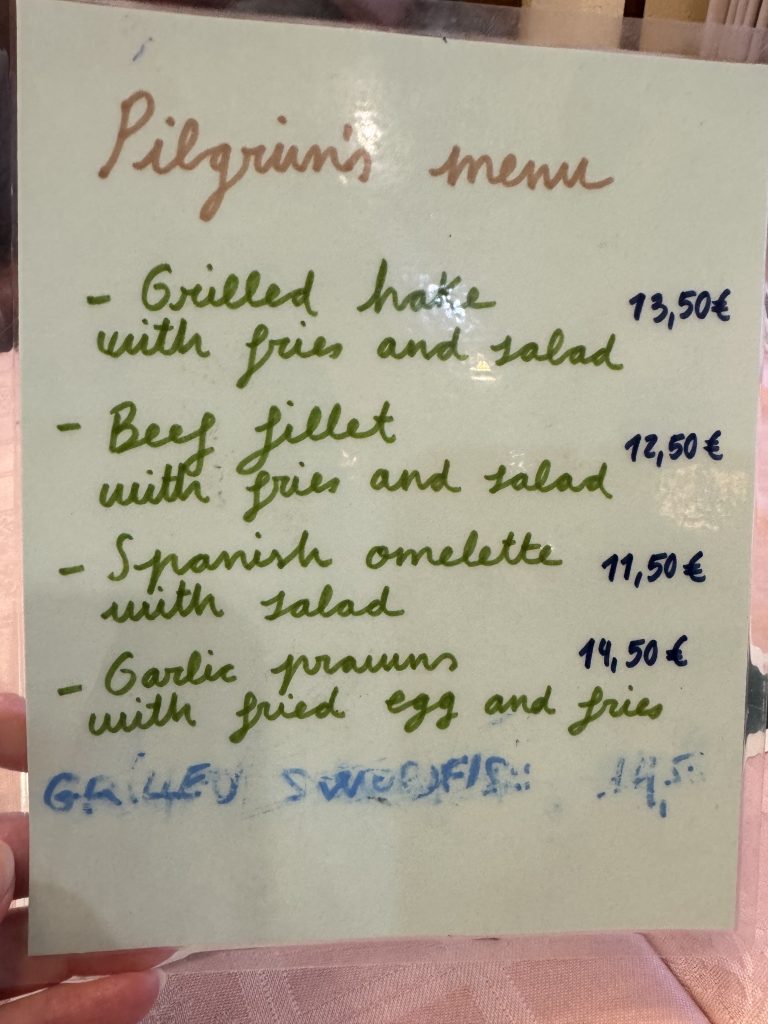 Pilgrim's menu
- Grilled hake 13,50€
with fries and salad
- Beef fillet 12,50€
with fries and salad
- Spanish omelette 11,50€
with salad
- Garlic prawns 14,50€
with fried egg and fries
GRILLED SWORDFISH 14,5